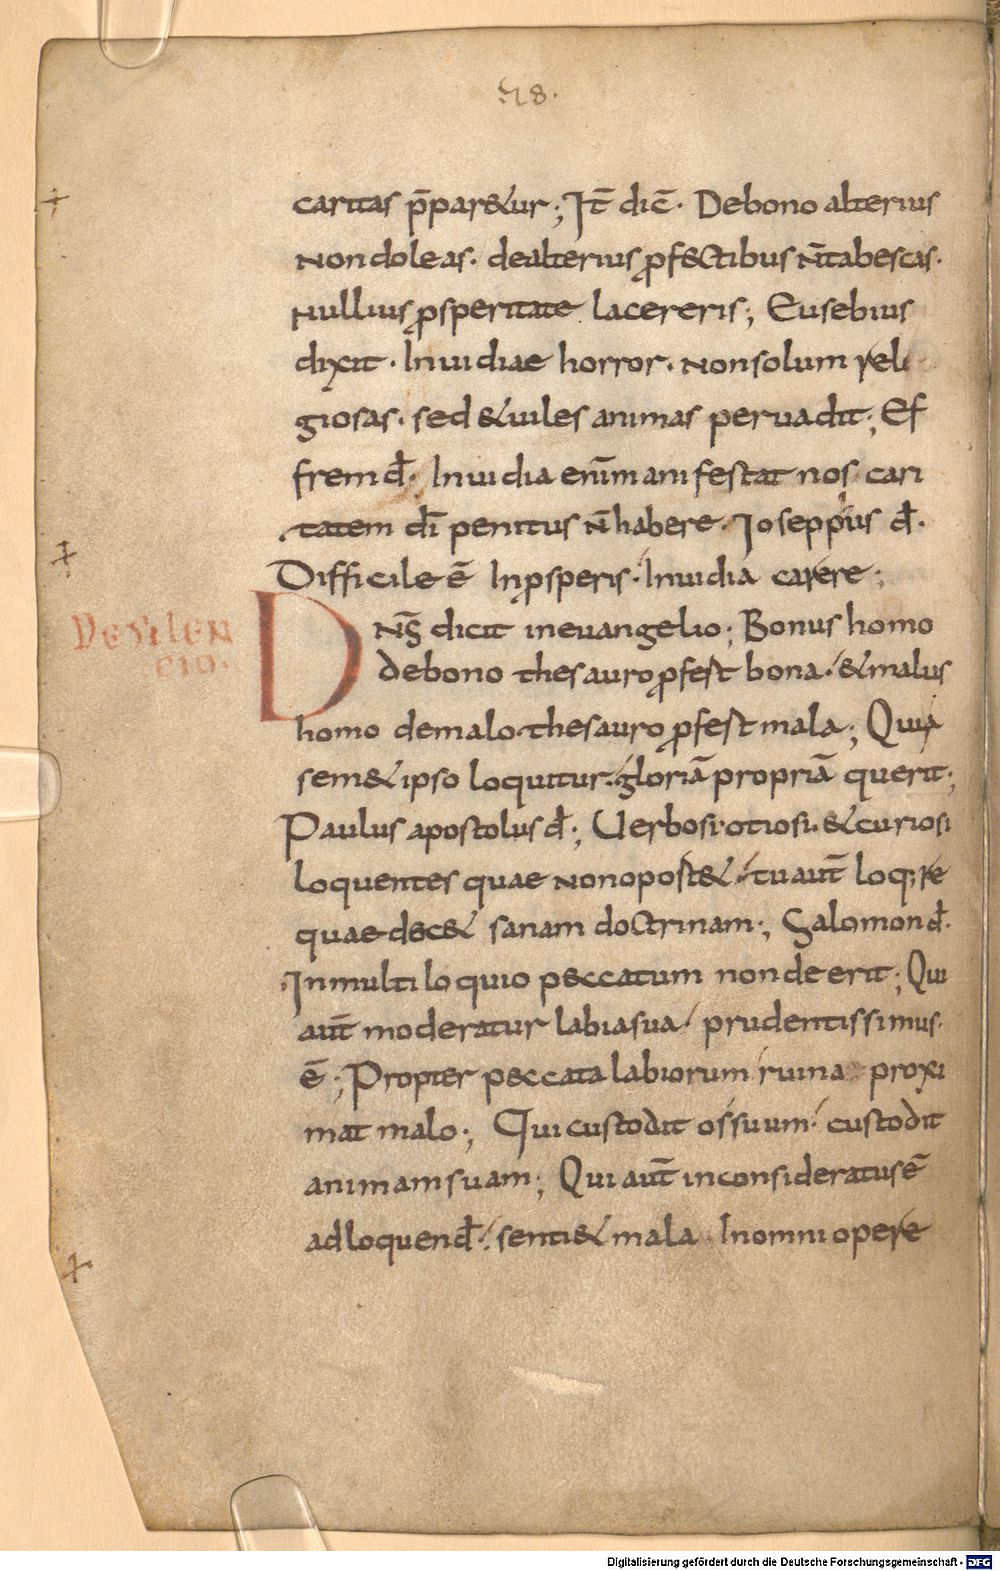 78.
caritas p̄par&ur; It̄ dic̄· Debono alterius
Nondoleas· dealterius ꝓfectibus N̄tabescas·
Nullius ꝓsperitate lacereris; Eusebius
dixit· Inuidiae horror· Nonsolum reli
giosas· sed &uiles animas peruadit; Ef
frem d̄· Inuidia enim̄anifestat nos cari
tatem dī penitus N̄habere· Ioseppus d̄·
Difficile ē Inꝓsperis· Inuidia carere;
DN̄S dicit ineuangelio; Bonus homo
Desilen
cio.
debono thesauro ꝓfest bona· &malus
homo demalo·thesauro ꝓfest mala; Quia
sem&ipso loquitur· gloriā propriā querit;
Paulus apostolus d̄; Uerbosi·otiosi·&curiosi
loquentes quae Nonoport& tuaut̄ loq;re
quaedec& sanam doctrinam; Salomon d̄·
Inmultiloquio peccatum nondeerit; Qui
aut̄ moderatur labiasua· prudentissimus·
ē; Propter peccatalabiorum ruina proxi
mat malo; Qui custodit ossuum· custodit
animamsuam; Qui aut̄ inconsideratusē
adloquend̄· senti& mala Inomni opere
Digitalisierung gefördert durch die Deutsche Forschungsgemeinschaft - DFG